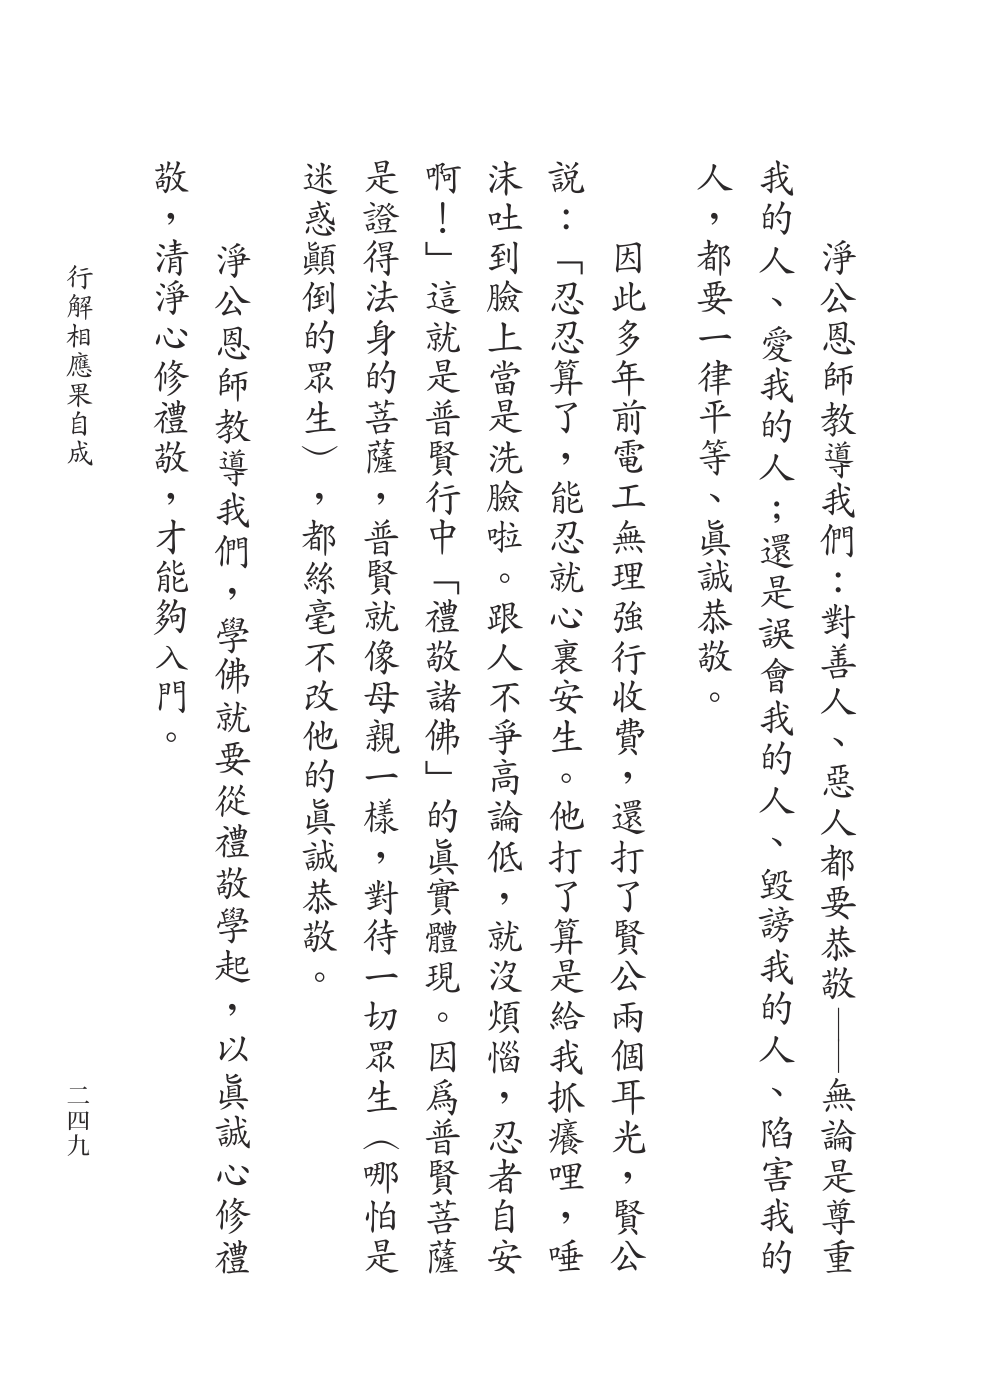 淨公恩師教導我們：對善人、惡人都要恭敬——無論是尊重
我的人、愛我的人；還是誤會我的人、毀謗我的人、陷害我的
人，都要一律平等、眞誠恭敬。
因此多年前電工無理強行收費，還打了賢公兩個耳光，賢公
説：「忍忍算了，能忍就心裏安生。他打了算是給我抓癢哩，唾
沫吐到臉上當是洗臉啦。跟人不爭高論低，就沒煩惱，忍者自安
啊！」這就是普賢行中「禮敬諸佛」的眞實體現。因爲普賢菩薩
是證得法身的菩薩，普賢就像母親一樣，對待一切眾生（哪怕是
迷惑顚倒的眾生），都絲毫不改他的眞誠恭敬。
淨公恩師教導我們，學佛就要從禮敬學起，以眞誠心修禮
敬，清淨心修禮敬，才能夠入門。
行解相應果自成
二四九